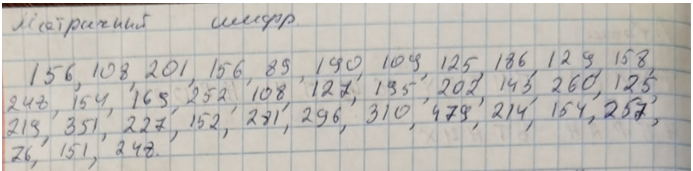 Матричний шифр.
156, 108, 201, 156, 89, 190, 109, 125, 186, 129, 158,
248, 154, 169, 252, 108, 127, 195, 202, 143, 260, 125,
219, 351, 227, 152, 271, 296, 310, 479, 214, 154, 257,
76, 151, 248.